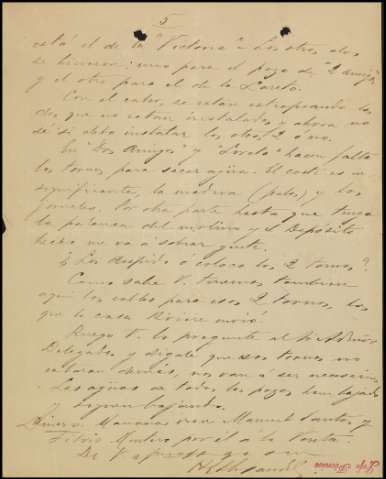 5
está él de la "Victoria". Los otros dos
se hicieron: uno para el pozo de "2 amigos"
y el otro para el de la Loreto.
Con el calor, se están estropeando los
dos, que no están instalados y ahora no
sé si debo instalar los otros 2 ó no.
En "Dos Amigos" y "Loreto" hacen falta
los tornos para sacar agua. El coste es in-
significante, la madera (palos) y los
jornales. Por otra parte hasta que tenga
la palanca del molino y el depósito
hecho no va á sobrar gente.
¿Los despido ó coloco los 2 tornos?
Como sabe V. tenemos tambien
aquí los cables para esos 2 tornos, los
que la casa envió.
Ruego V. lo pregunte al Sr.
Delegado y dígale que esos tornos no
estarán demás, nos van á ser necesarios
. Las aguas de todos los pozos han bajado
y siguen bajando.
Dinero. Mañana van Manuel Santos y
por él á la Venta.
De V. afmo. s. s. q. e. s. m.